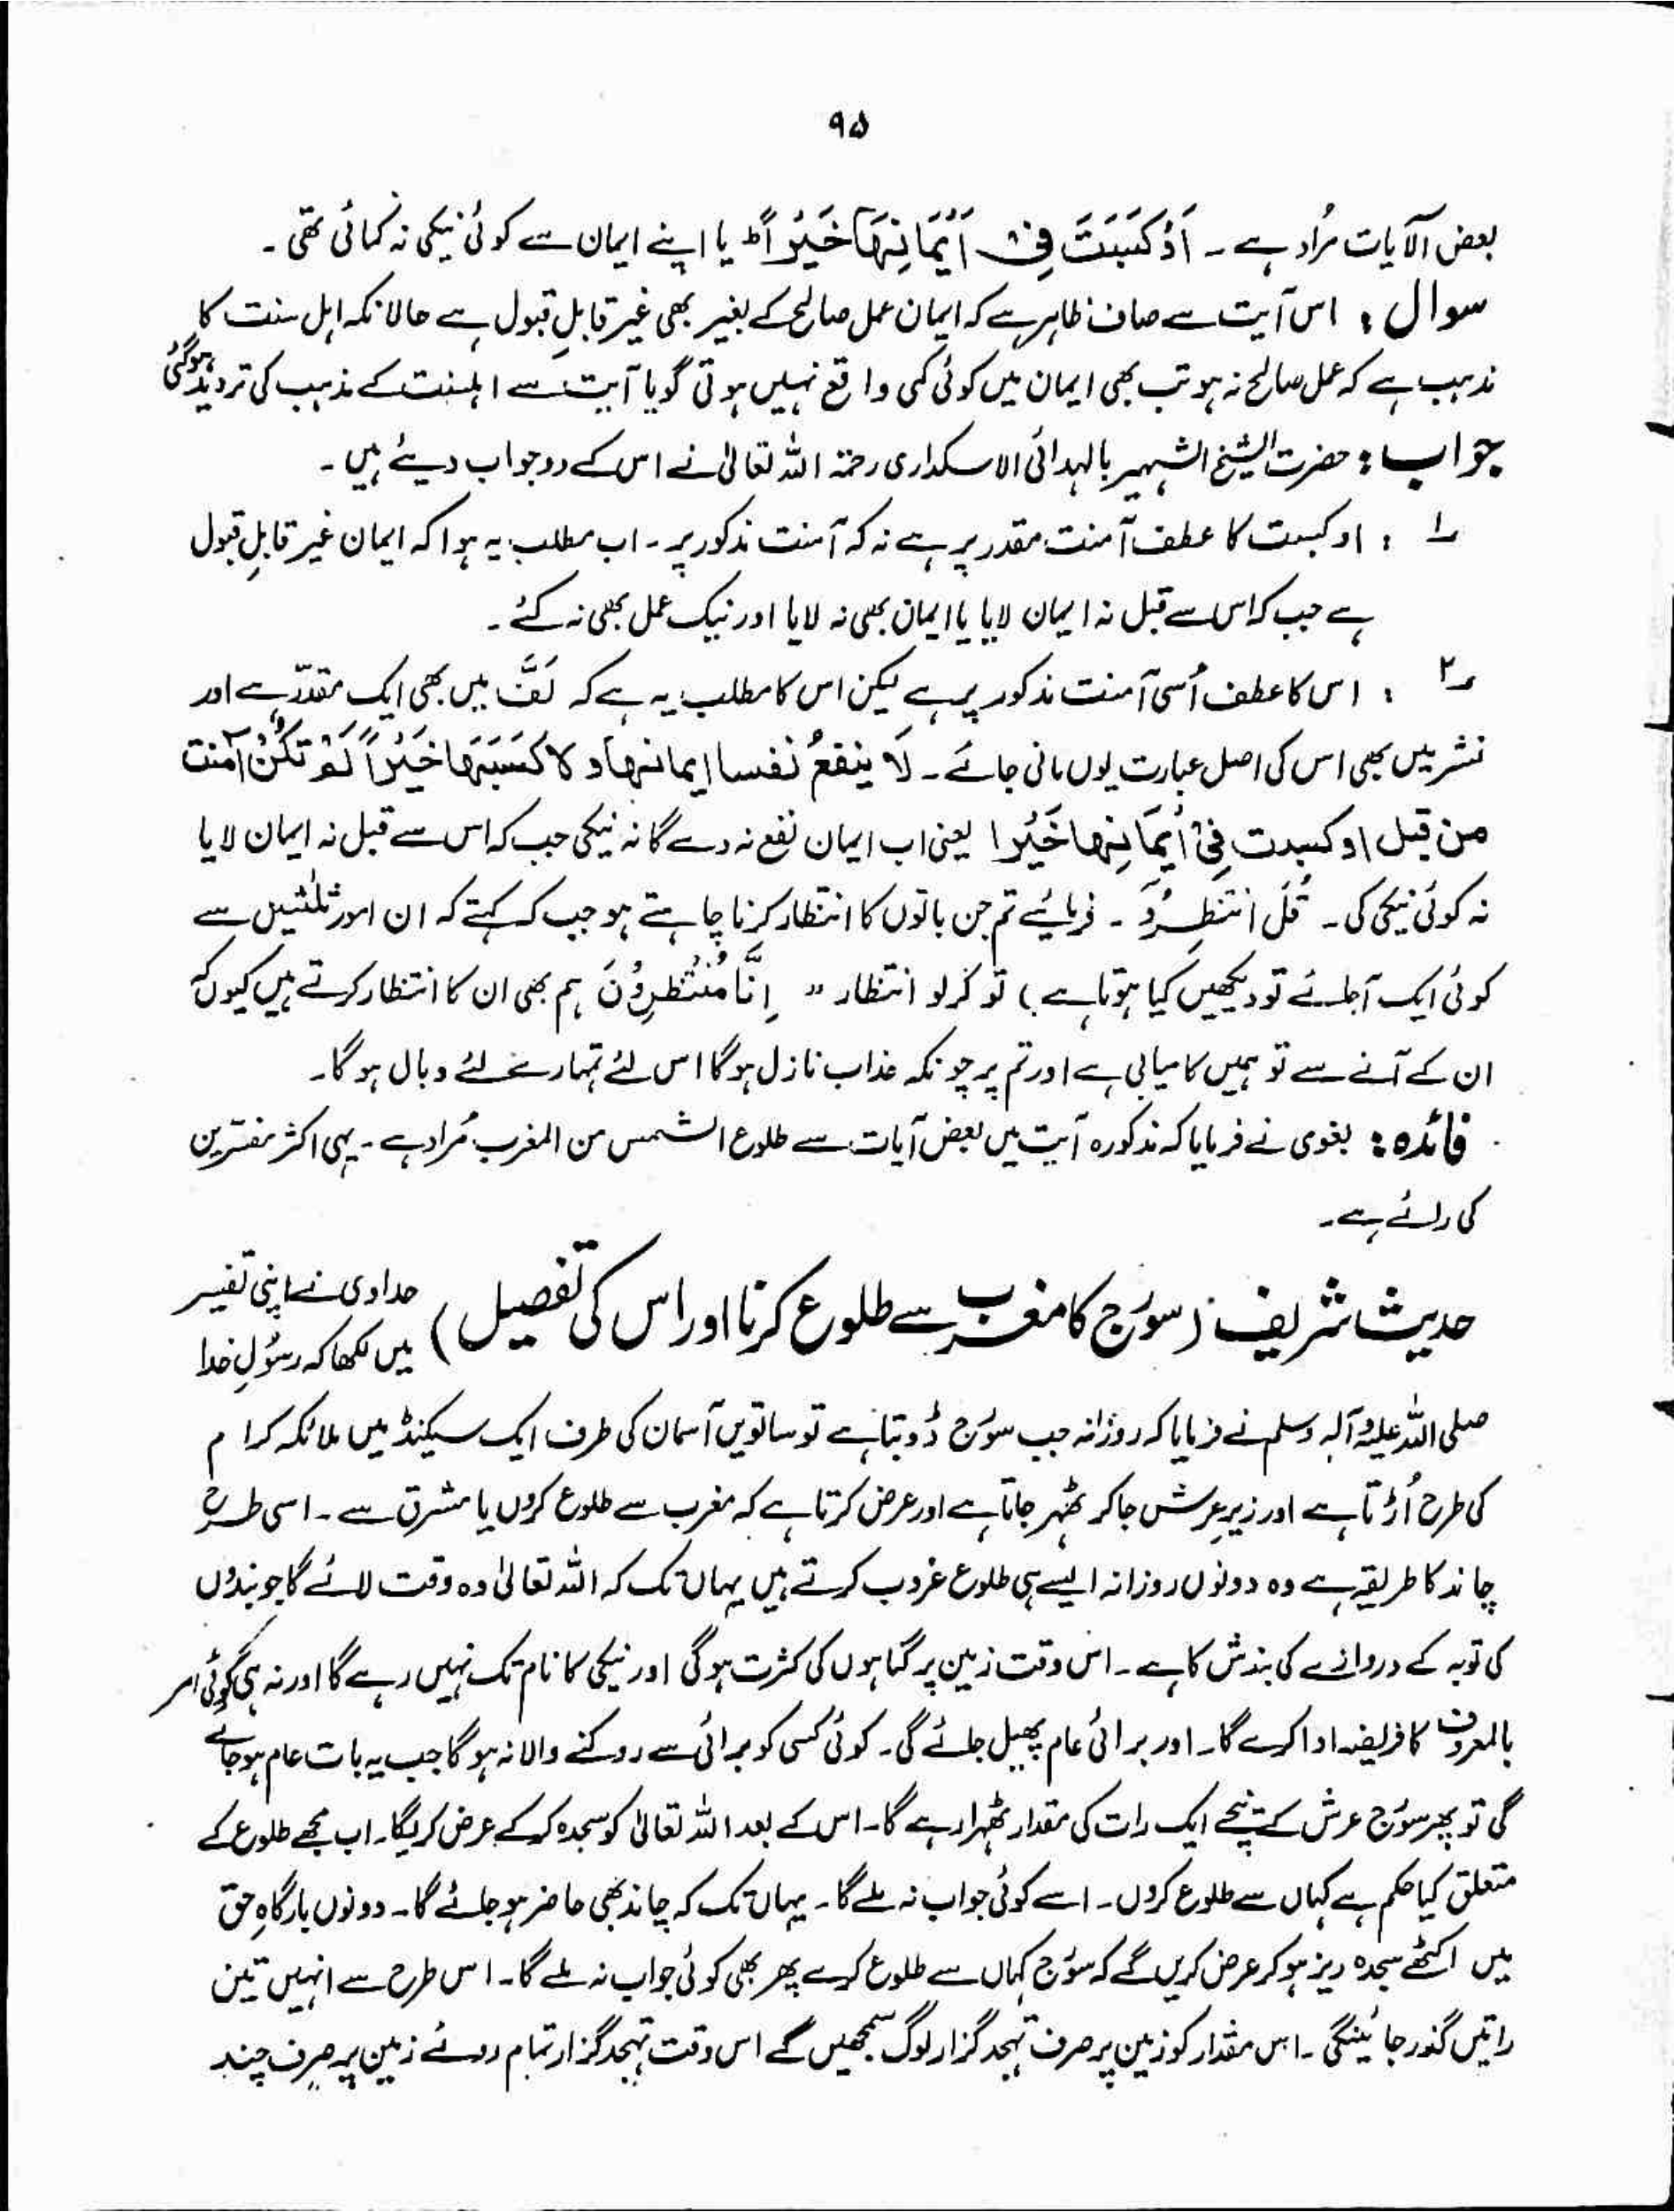 ۹۵
بعض الآیات مُراد ہے ۔ اَوْ کَسَبَتَ فِیْ اَیْمَانِہَا خَیْرًا ط یا اپنے ایمان سے کوئی نیکی نہ کمائی تھی ۔
سوال : اس آیت سے صاف ظاہر ہے کہ ایمان عمل صالح کے بغیر بھی غیر قابلِ قبول ہے حالانکہ اہل سنت کا
مذہب ہے کہ عمل صالح نہ ہو تب بھی ایمان میں کوئی کمی واقع نہیں ہوتی گویا آیت سے اہلسنت کے مذہب کی تردید ہوگئی
جواب : حضرت الشیخ الشہیر بالہدائی الاسکداری رحمۃ اللہ تعالیٰ نے اس کے دو جواب دیئے ہیں ۔
۱ : او کسبت کا عطف آمنت مقدر پر ہے نہ کہ آمنت مذکور پر ۔ اب مطلب یہ ہوا کہ ایمان غیر قابلِ قبول
ہے جب کہ اس سے قبل نہ ایمان لایا یا ایمان بھی نہ لایا اور نیک عمل بھی نہ کئے ۔
۲ : اس کا عطف اُسی آمنت مذکور پر ہے لیکن اس کا مطلب یہ ہے کہ لَفّ میں بھی ایک مقدّر ہے اور
نشر میں بھی اس کی اصل عبارت یوں مانی جائے ۔ لَا ینفعُ نفسا ایمانہا و لا کَسَبَہَا خَیْرًا لَمْ تَکُنْ آمنت
من قبل او کسبت فِیْ اِیْمَانِہا خَیْرا یعنی اب ایمان نفع نہ دے گا نہ نیکی جب کہ اس سے قبل نہ ایمان لایا
نہ کوئی نیکی کی ۔ قُلَ انتظِرُوَ ۔ فرمایئے تم جن باتوں کا انتظار کرنا چاہتے ہو جب کہ کہتے کہ ان امور ثلثہ میں سے
کوئی ایک آجائے تو دیکھیں کیا ہوتا ہے ) تو کرلو انتظار " اِنَّا مُنْتَظِرُوْنَ ہم بھی ان کا انتظار کرتے ہیں کیوں کہ
ان کے آنے سے تو ہمیں کامیابی ہے اور تم پر چونکہ عذاب نازل ہوگا اس لئے تمہارے لئے وبال ہو گا ۔
فائدہ : بغوی نے فرمایا کہ مذکورہ آیت میں بعض آیات سے طلوع الشمس من المغرب مُراد ہے ۔ یہی اکثر مفسّرین
کی رائے ہے ۔
حدیث شریف (سُورج کا مغرب سے طلوع کرنا اور اس کی تفصیل) حدادی نے اپنی تفسیر
میں لکھا کہ رسُولِ خدا
صلی اللہ علیہ وآلہ وسلم نے فرمایا کہ روزانہ جب سورج ڈوبتا ہے تو ساتویں آسمان کی طرف ایک سیکنڈ میں ملائکہ کرام
کی طرح اُڑتا ہے اور زیر عرش جا کر ٹھہر جاتا ہے اور عرض کرتا ہے کہ مغرب سے طلوع کروں یا مشرق سے ۔ اسی طرح
چاند کا طریقہ ہے وہ دونوں روزانہ ایسے ہی طلوع غروب کرتے ہیں یہاں تک کہ اللہ تعالیٰ وہ وقت لائے گا جو بندوں
کی توبہ کے دروازے کی بندش کا ہے ۔ اس وقت زمین پر گناہوں کی کثرت ہوگی اور نیکی کا نام تک نہیں رہے گا اور نہ ہی کوئی امر
بالمعروف کا فریضہ ادا کرے گا ۔ اور برائی عام پھیل جائے گی ۔ کوئی کسی کو برائی سے روکنے والا نہ ہو گا جب یہ بات عام ہوجائے
گی تو پھر سورج عرش کے نیچے ایک رات کی مقدار ٹھہرا رہے گا ۔ اس کے بعد اللہ تعالیٰ کو سجدہ کر کے عرض کریگا ۔ اب مجھے طلوع کے
متعلق کیا حکم ہے کہاں سے طلوع کروں ۔ اسے کوئی جواب نہ ملے گا ۔ یہاں تک کہ چاند بھی حاضر ہو جائے گا ۔ دونوں بارگاہِ حق
میں اکٹھے سجدہ ریز ہو کر عرض کریں گے کہ سورج کہاں سے طلوع کرے پھر بھی کوئی جواب نہ ملے گا ۔ اس طرح سے انہیں تین
راتیں گذر جائینگی ۔ اس مقدار کو زمین پر صرف تہجد گزار لوگ سمجھیں گے اس وقت تہجد گزار تمام روئے زمین پر صرف چند